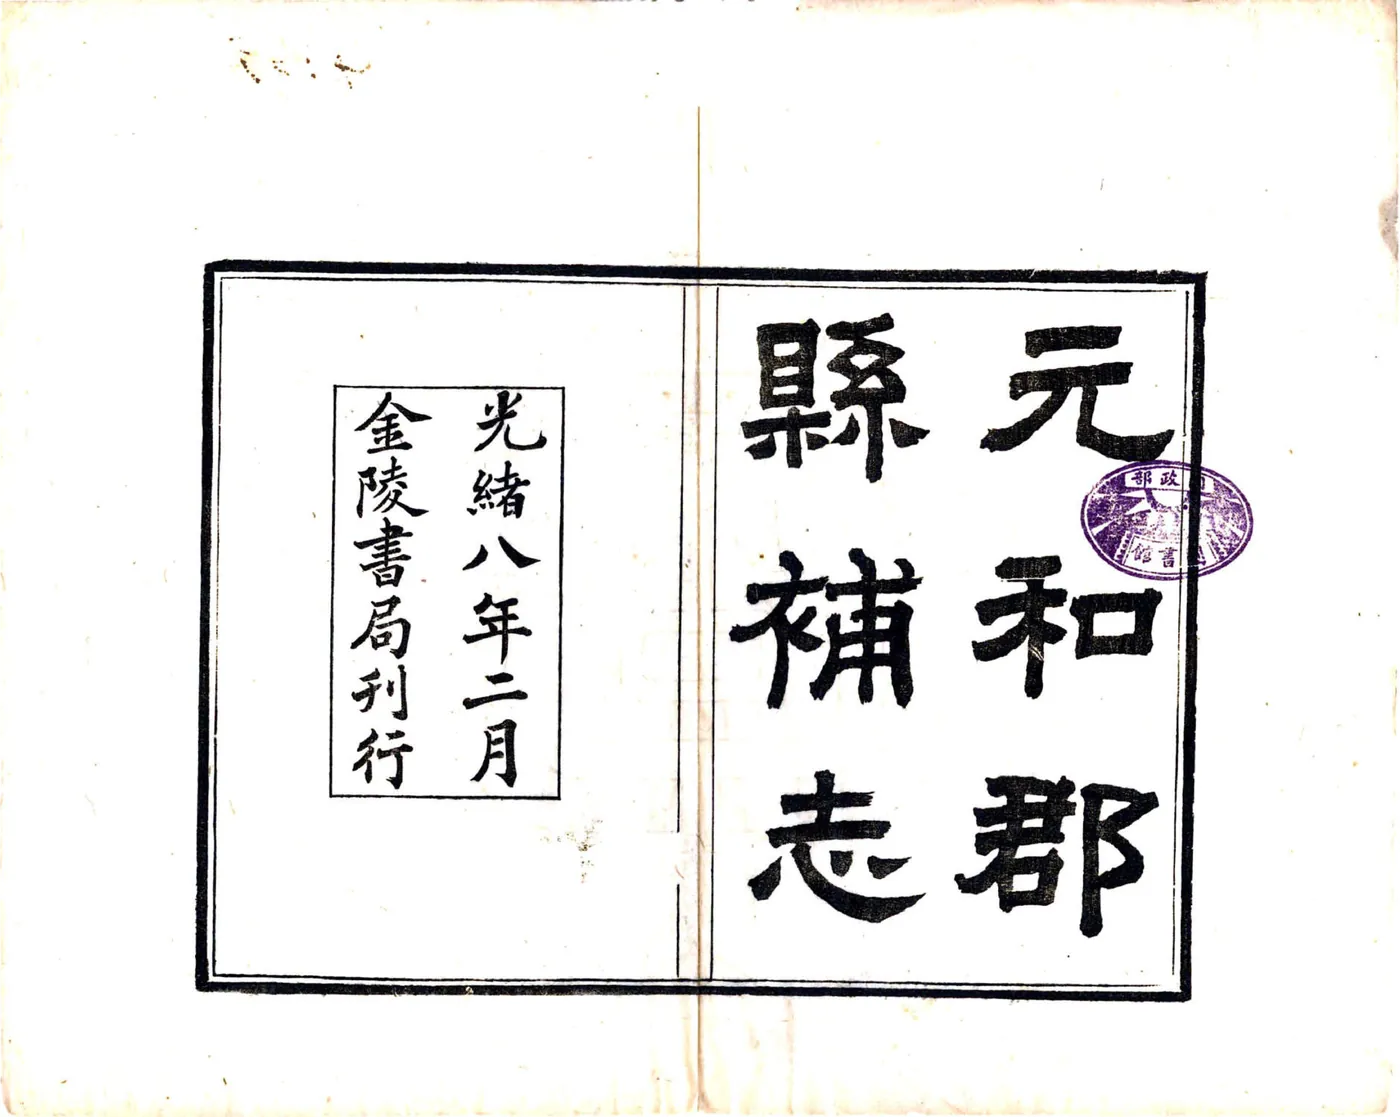 元和郡
縣補志
光緒八年二月
金陵書局刊行
政部
書館